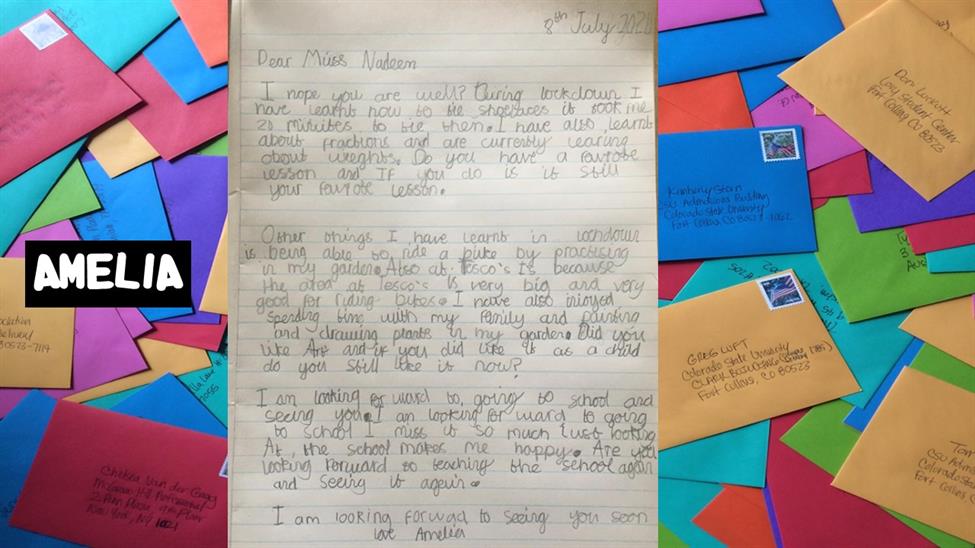 8th July 2020
Dear Miss Nadeem
I hope you are well? During lockdown I
have learnt how to tie shoelaces it took me
20 minutes to tie them. I have also learnt
about fractions and are currently learing
about weights. Do you have a favrote
lesson and If you do is it still
your favrote lesson.
Other things I have learnt in lockdown
is being able to ride a bike by practising
in my garden. Also at Tesco's It's because
the area at Tesco's is very big and very
good for riding bykes. I have also injoyed
spending time with my family and painting
and drawing plants in my garden. Did you
like Art and if you did like it as a child
do you still like it now?
I am looking for ward to, going to school and
seeing you. I am looking for ward to going
to school I miss it so much Just looking
At, the school makes me happy. Are you
looking forward to teaching the school again
and seeing it again.
I am looking forwad to seeing you soon
love Amelia
AMELIA
80523-7114
Chelsea Van der Gaag
2 Penn Plaza, 4th Floor
New York, NY
Don Luckett
Lory Student Center
Fort Collins CO 80523
Kimberly Stern
CSU Admissions Building
Colorado State University
Fort Collins, CO 80523-1062
GREG LUFT
Colorado State University
Fort Collins, CO 80523
Tom
CSU Admi
Colorado State
Fort Collins